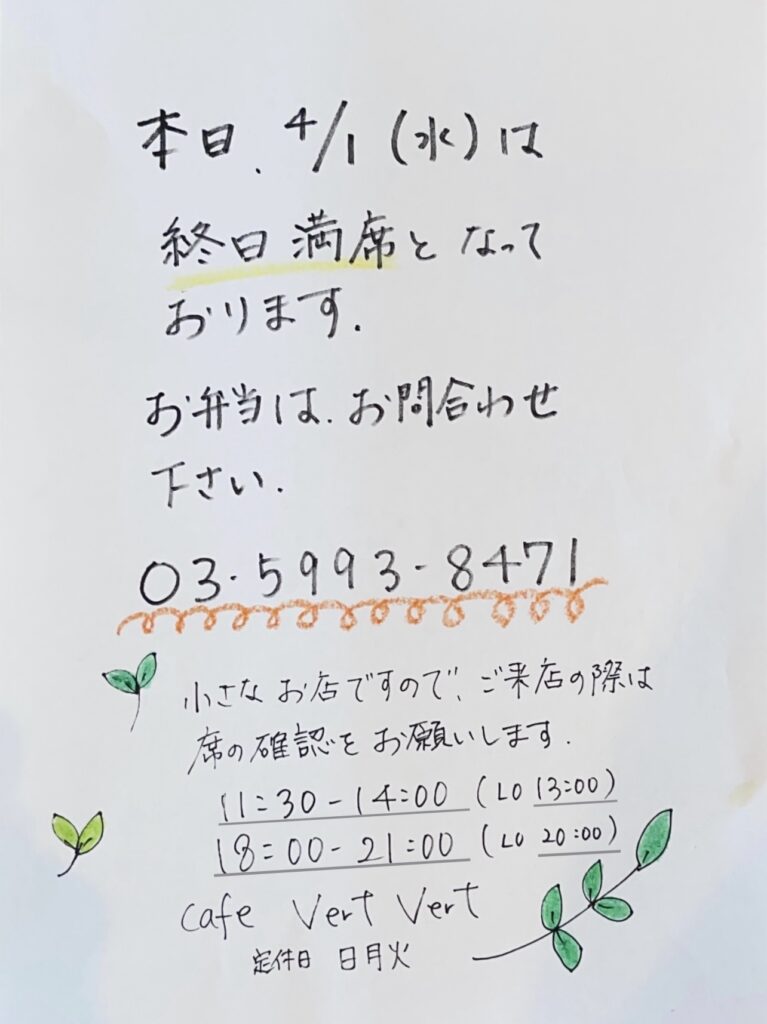 本日、4/1(水)は
終日満席となって
おります.
お弁当は、お問合わせ
下さい.
03-5993-8471
小さなお店ですので、ご来店の際は
席の確認をお願いします.
11:30-14:00 (LO 13:00)
18:00-21:00 (LO 20:00)
cafe Vert Vert
定休日 日月火